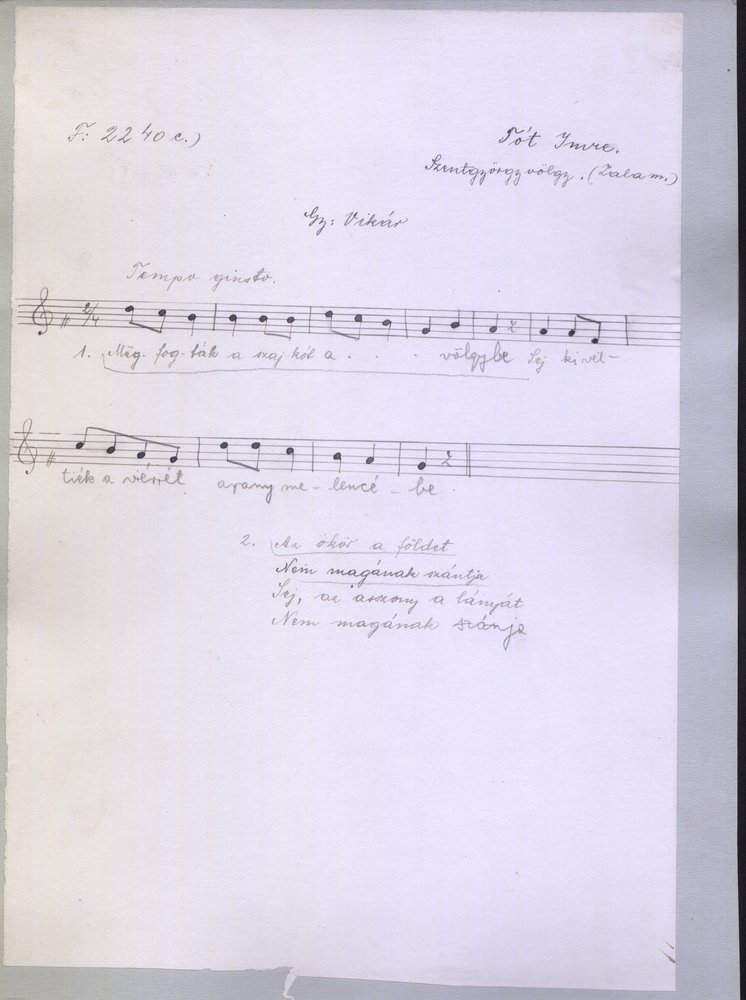 F: 2240 c.)
Tót Imre.
Szentgyörgyvölgy. (Zala m.)
Gy: Vikár
Tempo giusto.
2/4
1. Meg-fog-ták a szaj-kót a . . . völgybe Sej ki vet-
ték a vérrét arany me-lencé-be
2. Az ökör a földet
Nem magának szántja
Sej, az asszony a lányát
Nem magának szánja